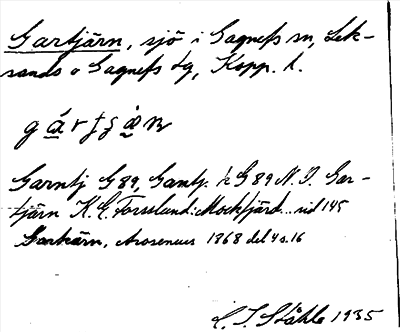 Gartjärn, sjö i Gagnefs sn, Lek-
sands o Gagnefs tg, Kopp. l.
Garntj G 89, Gantj. k G 89 N.I. Gar-
tjärn K.E. Forsslund: Mockfjärd... sid 145
Garkärn, Arosenius 1868 del 4 s. 16
C. I. Ståhle 1935